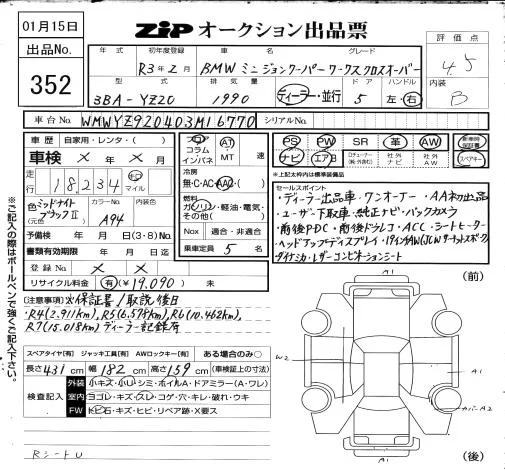 01月15日
ZIP オークション出品票
出品No.
352
年式 初年度登録 車名 グレード
R3年2月 BMW ミニ ジョンクーパーワークスクロスオーバー
型式 排気量 ドア ハンドル
3BA-YZ20 1990 ディーラー・並行 5 左・右
評価点
4.5
内装
B
車台No. WMWYZ920403M16770 シリアルNo.
車歴 自家用・レンタ・( )
車検 × 年 × 月
走行 18,234 キロ マイル
色 ミッドナイトブラックⅡ (元色) カラーNo. A94 内装色
予備検 年 月 日(3・8)No.
書類有効期限 年 月 日迄
登録No. × ×
リサイクル料金 有(¥19,090) 未
フロア コラム インパネ AT MT 速
冷房 無・C・AC・AAC
燃料 ガソリン・軽油・電気・その他( )
Nox 適合・非適合
乗車定員 5 名
PS PW SR 革 AW 新車時保証書
ナビ エアB 社外ナビ 社外AW スペアキー
※上記太枠内は標準装備
セールスポイント
・ディーラー出品車・ワンオーナー・AA初出品
・ユーザー下取車・純正ナビ・バックカメラ
・前後PDC・前後ドラレコ・ACC・シートヒーター
・ヘッドアップディスプレイ・19インチAW(JCWサーキットスポーク)
ダイナミカ・レザーコンビネーションシート
(注意事項)※保証書/取説後日
・R4(2,911km)、R5(6,579km)、R6(10,462km)、
R7(15,018km)ディーラー記録有
スペアタイヤ[有] ジャッキ工具[有] AWロックキー[有] ある場合のみ○
長さ431cm 幅182cm 高さ159cm (車検証上の寸法)
検査記入
外装 小キズ・小凹・シミ・ホイルA・ドアミラー(A・ワレ)
室内 ヨゴレ・キズ・スレ・コゲ・穴・キレ・破れ・ウキ
FW トビ石・キズ・ヒビ・リペア跡・X要ス
RシートU
(前)
A1
W2
A1
カバーA2
A1
(後)
※ご記入の際はボールペンで強くご記入下さい。